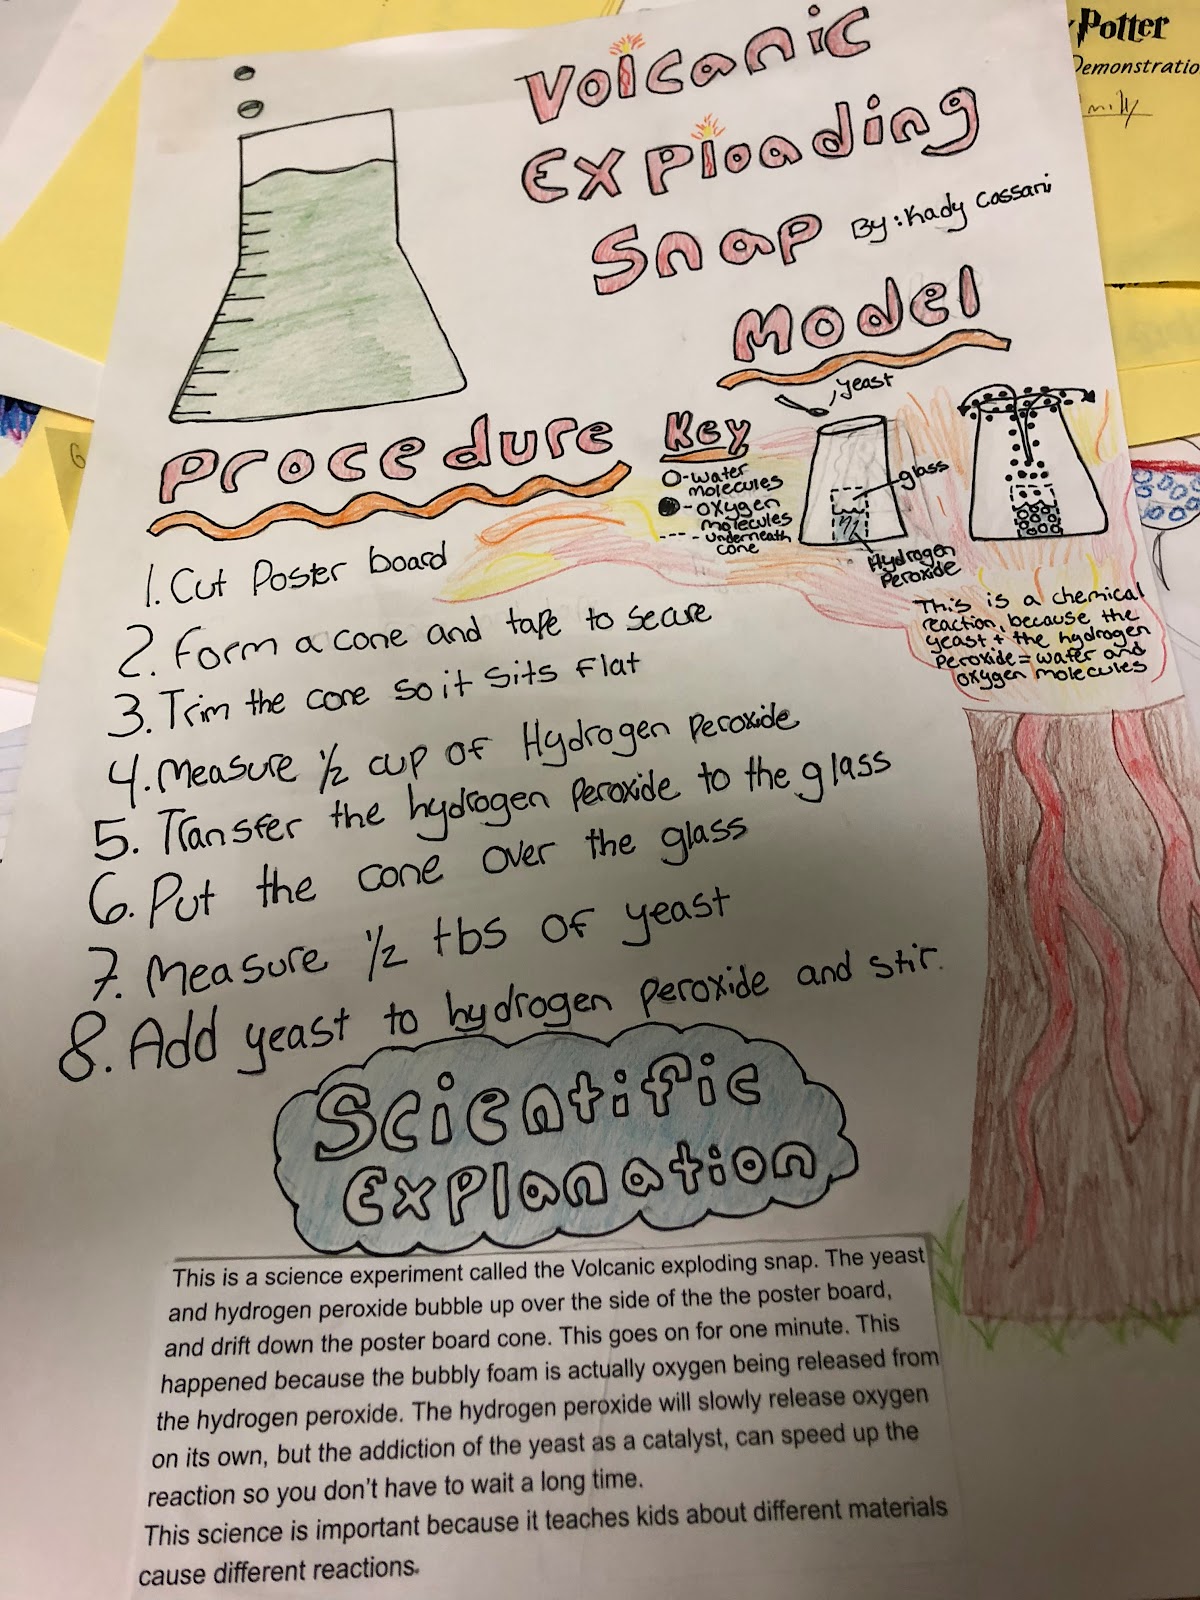 Potter
Demonstratio
Volcanic
Exploading
Snap
By: Kady Cassari
Model
Procedure
1. Cut Poster board
2. Form a cone and tape to secure
3. Trim the cone so it sits flat
4. Measure 1/2 cup of Hydrogen Peroxide
5. Transfer the hydrogen peroxide to the glass
6. Put the cone over the glass
7. Measure 1/2 tbs of yeast
8. Add yeast to hydrogen peroxide and stir.
Key
O-water
molecules
●-oxygen
molecules
---- underneath
cone
yeast
glass
Hydrogen
Peroxide
This is a chemical
reaction, because the
yeast + the hydrogen
Peroxide = water and
oxygen molecules
Scientific
Explanation
This is a science experiment called the Volcanic exploding snap. The yeast
and hydrogen peroxide bubble up over the side of the the poster board,
and drift down the poster board cone. This goes on for one minute. This
happened because the bubbly foam is actually oxygen being released from
the hydrogen peroxide. The hydrogen peroxide will slowly release oxygen
on its own, but the addiction of the yeast as a catalyst, can speed up the
reaction so you don't have to wait a long time.
This science is important because it teaches kids about different materials
cause different reactions.